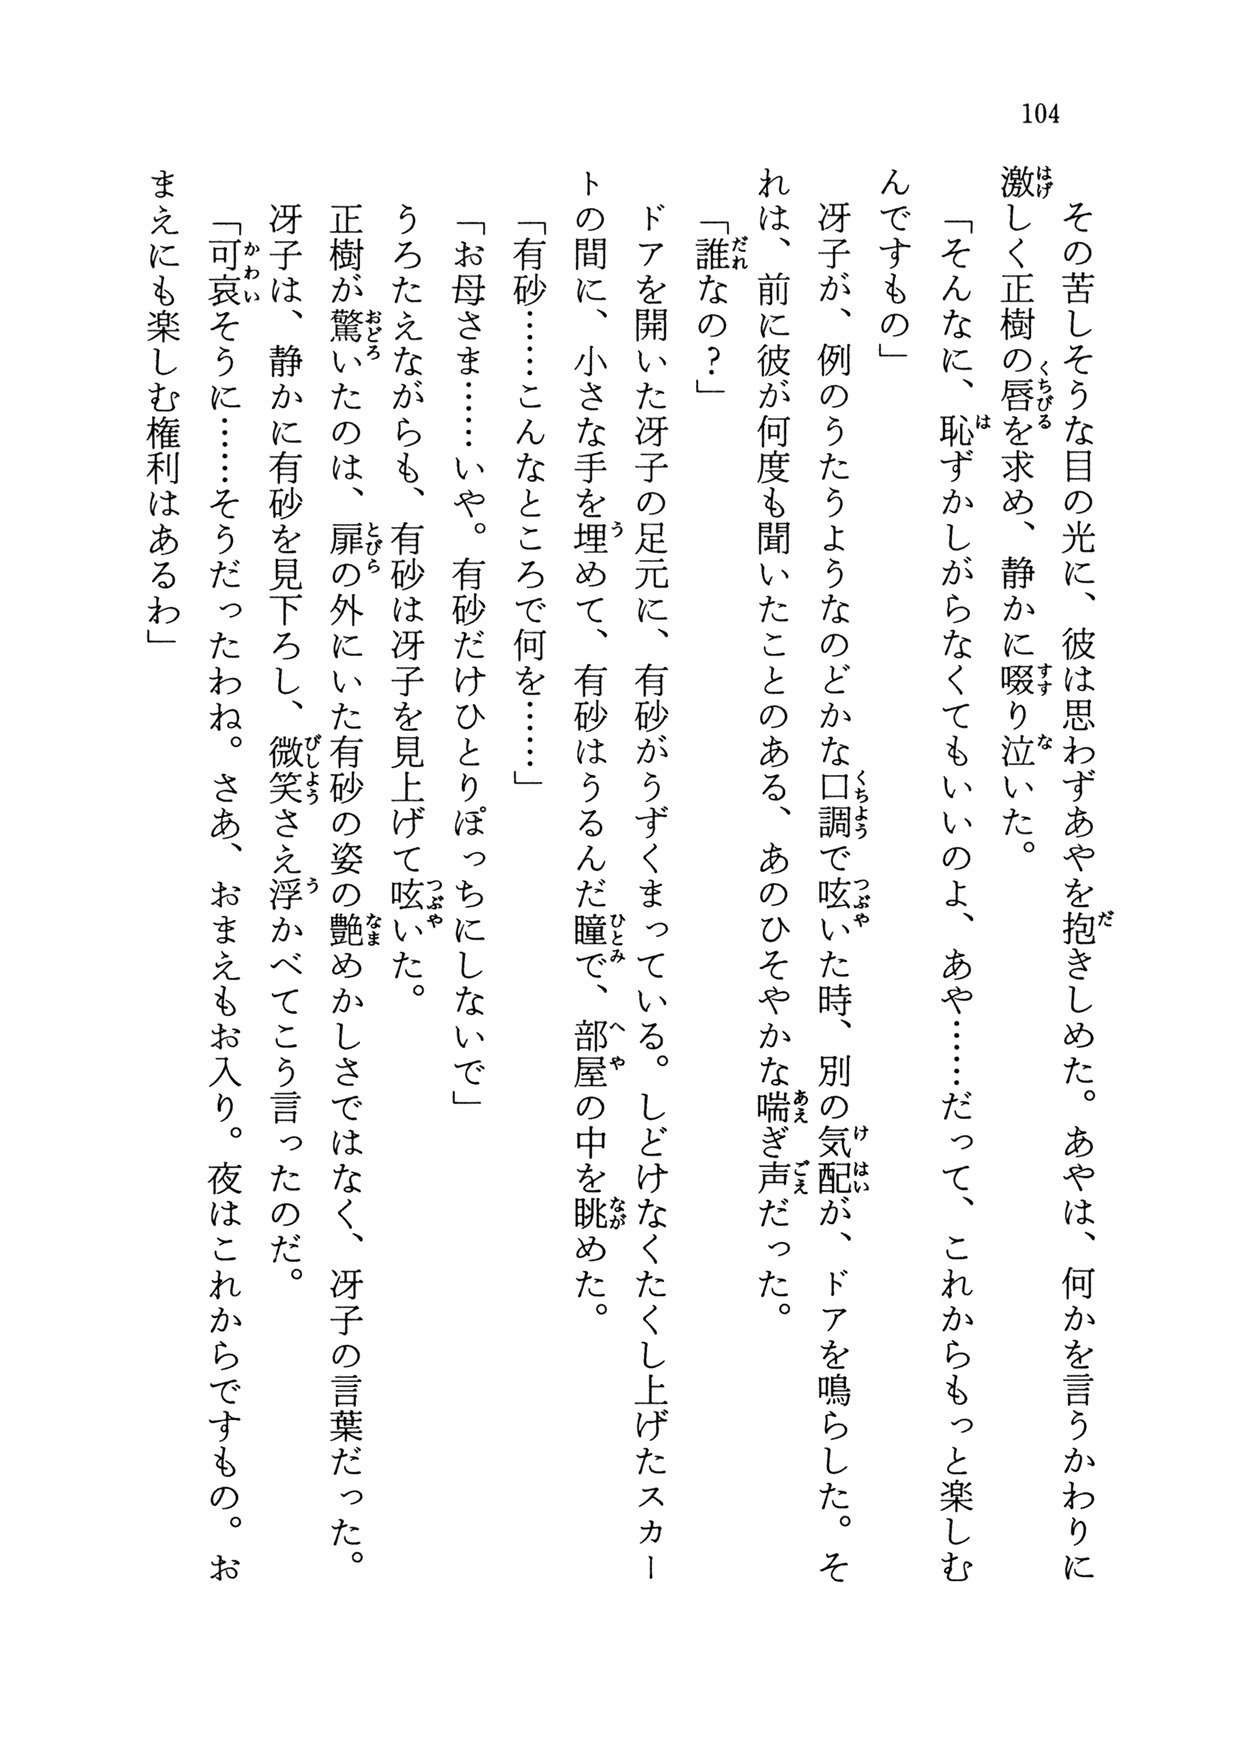 104
その苦しそうな目の光に、彼は思わずあやを抱きしめた。あやは、何かを言うかわりに
激しく正樹の唇を求め、静かに啜り泣いた。
「そんなに、恥ずかしがらなくてもいいのよ、あや……だって、これからもっと楽しむ
んですもの」
冴子が、例のうたうようなのどかな口調で呟いた時、別の気配が、ドアを鳴らした。そ
れは、前に彼が何度も聞いたことのある、あのひそやかな喘ぎ声だった。
「誰なの?」
ドアを開いた冴子の足元に、有砂がうずくまっている。しどけなくたくし上げたスカー
トの間に、小さな手を埋めて、有砂はうるんだ瞳で、部屋の中を眺めた。
「有砂……こんなところで何を……」
「お母さま……いや。有砂だけひとりぽっちにしないで」
うろたえながらも、有砂は冴子を見上げて呟いた。
正樹が驚いたのは、扉の外にいた有砂の姿の艶めかしさではなく、冴子の言葉だった。
冴子は、静かに有砂を見下ろし、微笑さえ浮かべてこう言ったのだ。
「可哀そうに……そうだったわね。さあ、おまえもお入り。夜はこれからですもの。お
まえにも楽しむ権利はあるわ」